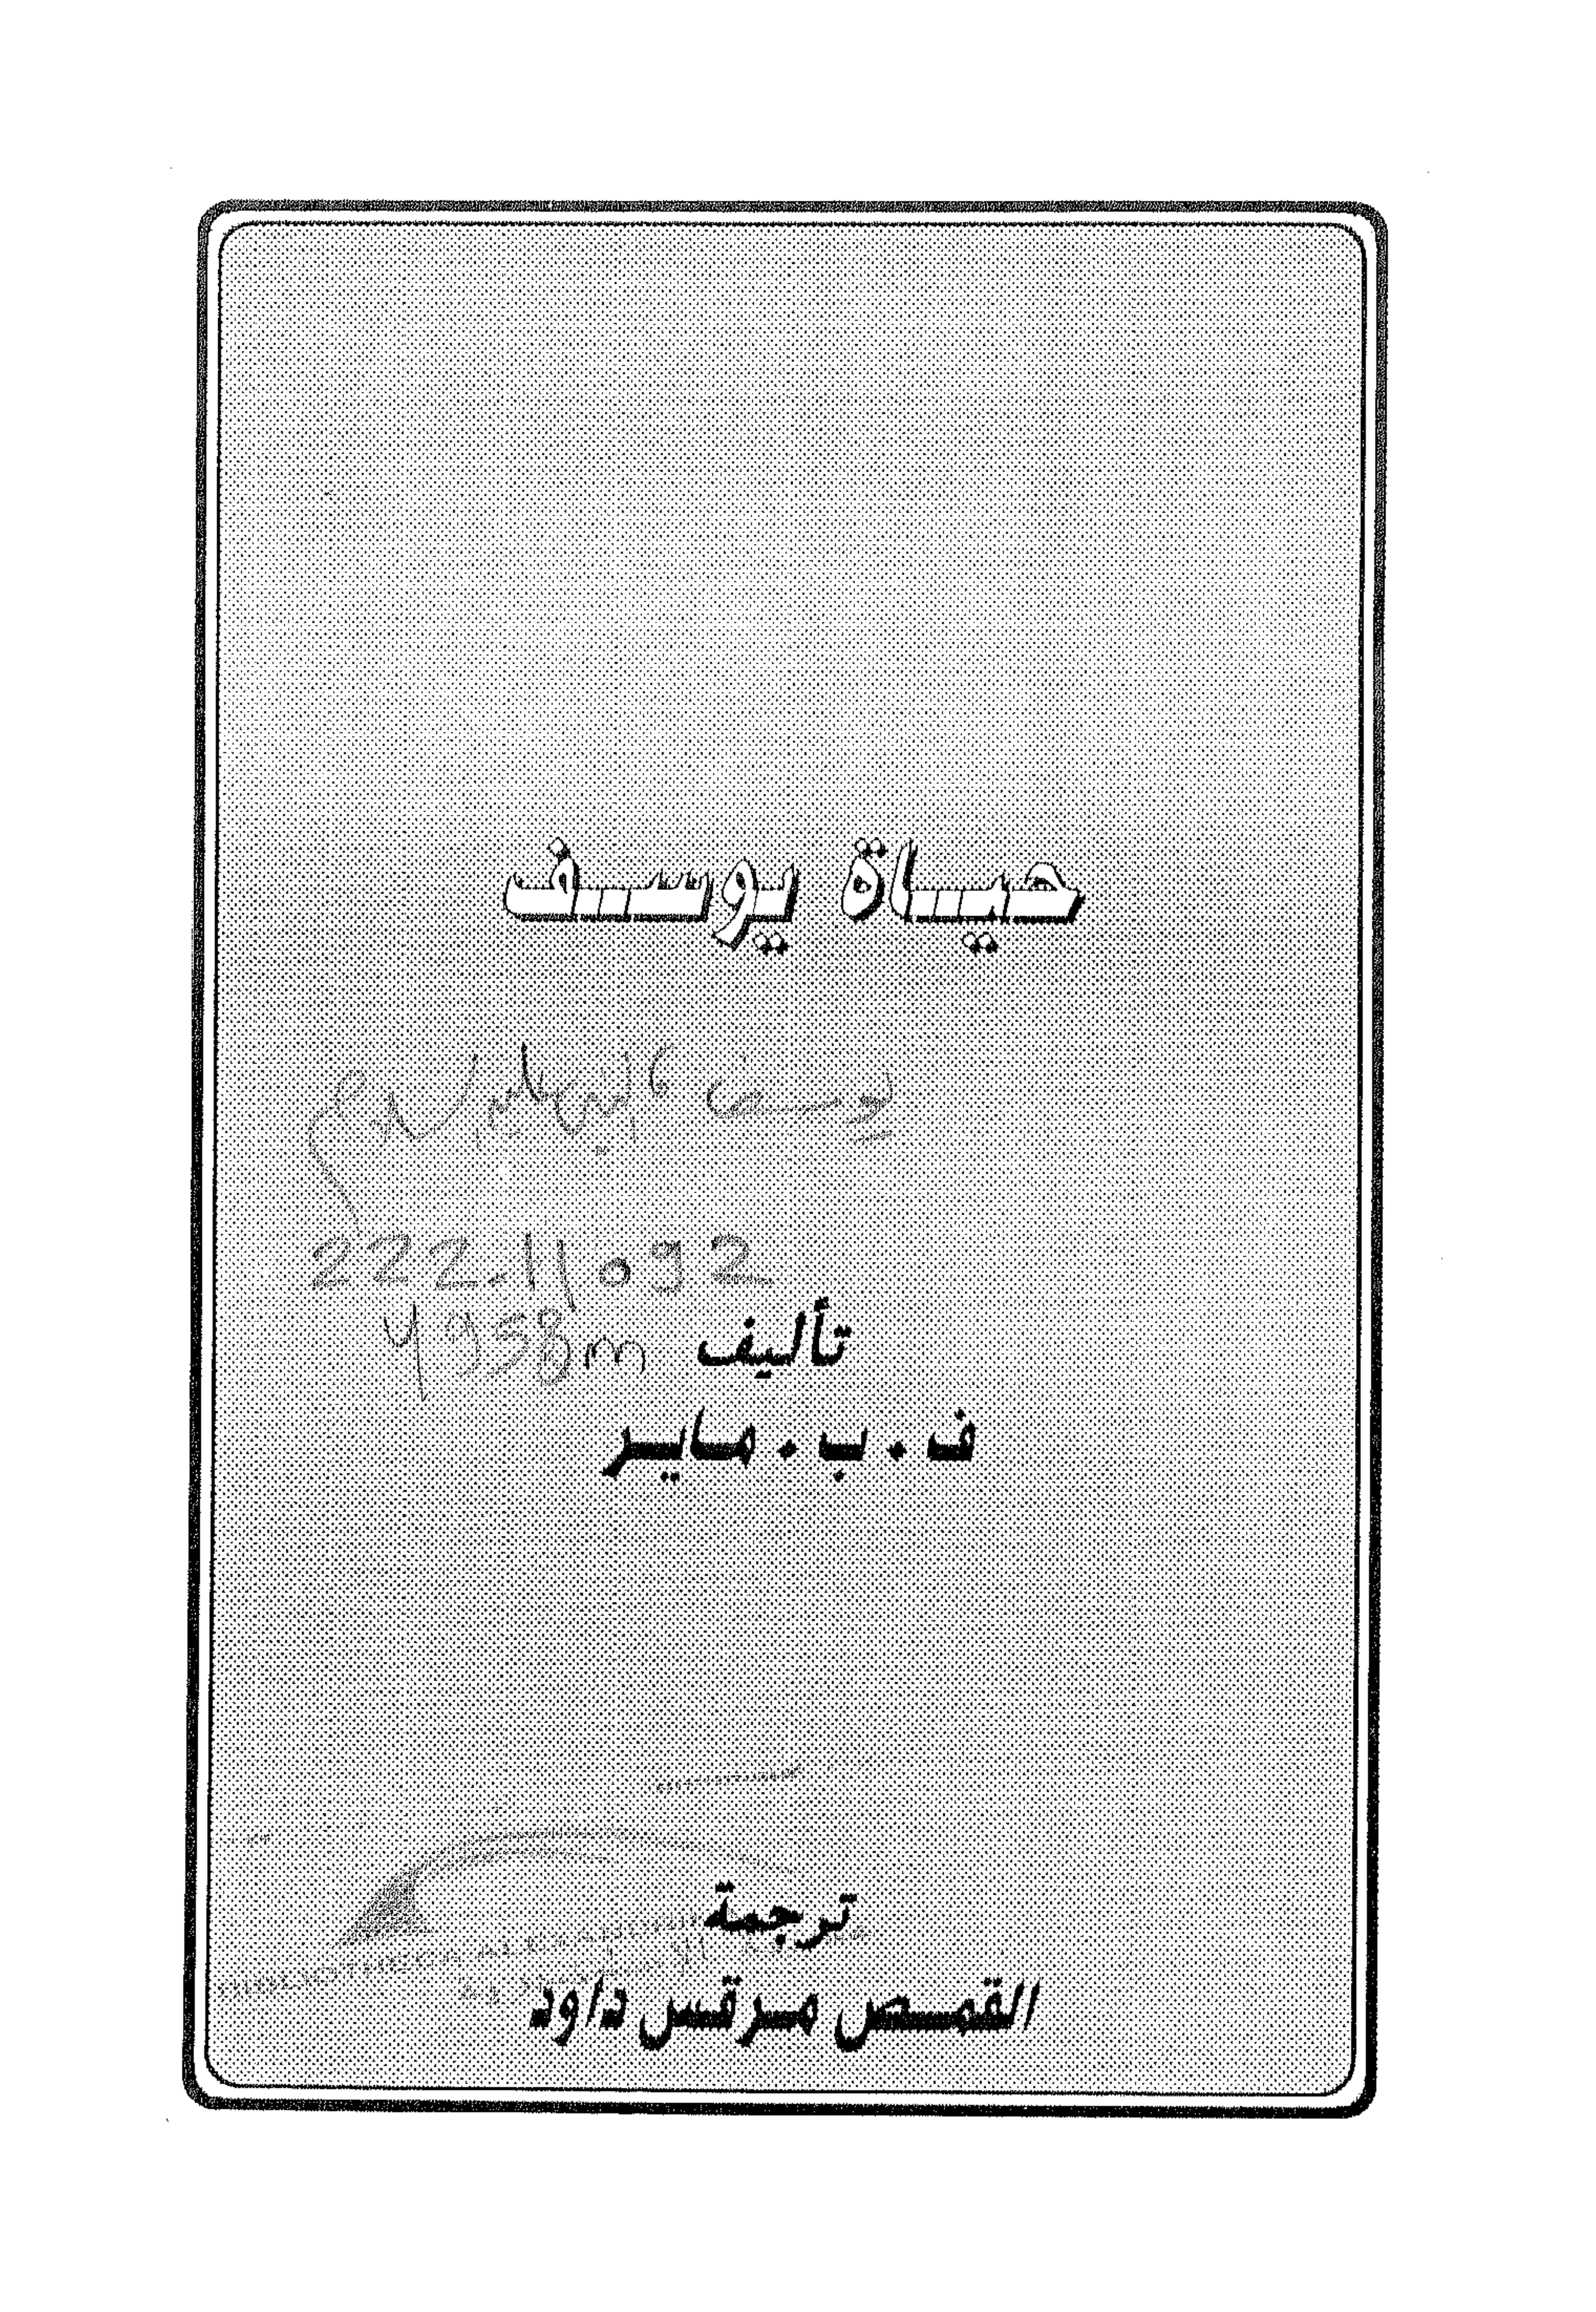 حياة يوسف
يوسف
222.11092
4958m
تأليف
ف . ب . ماير
ترجمة
القمص مرقس داود